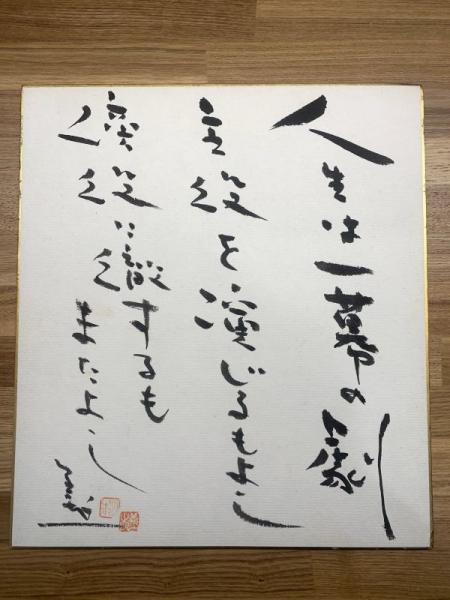 人生は一幕の劇
主役を演じるもよし
僕役に徹するも
またよし